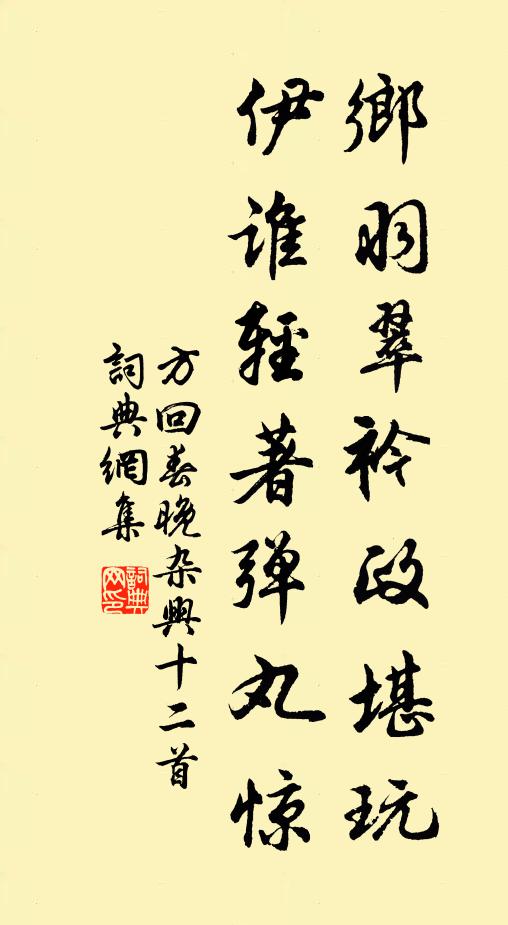 鄉羽翠衿政堪玩
伊誰輕著弹丸惊
方回春晚杂興十二首
詞典網集
詞典網印